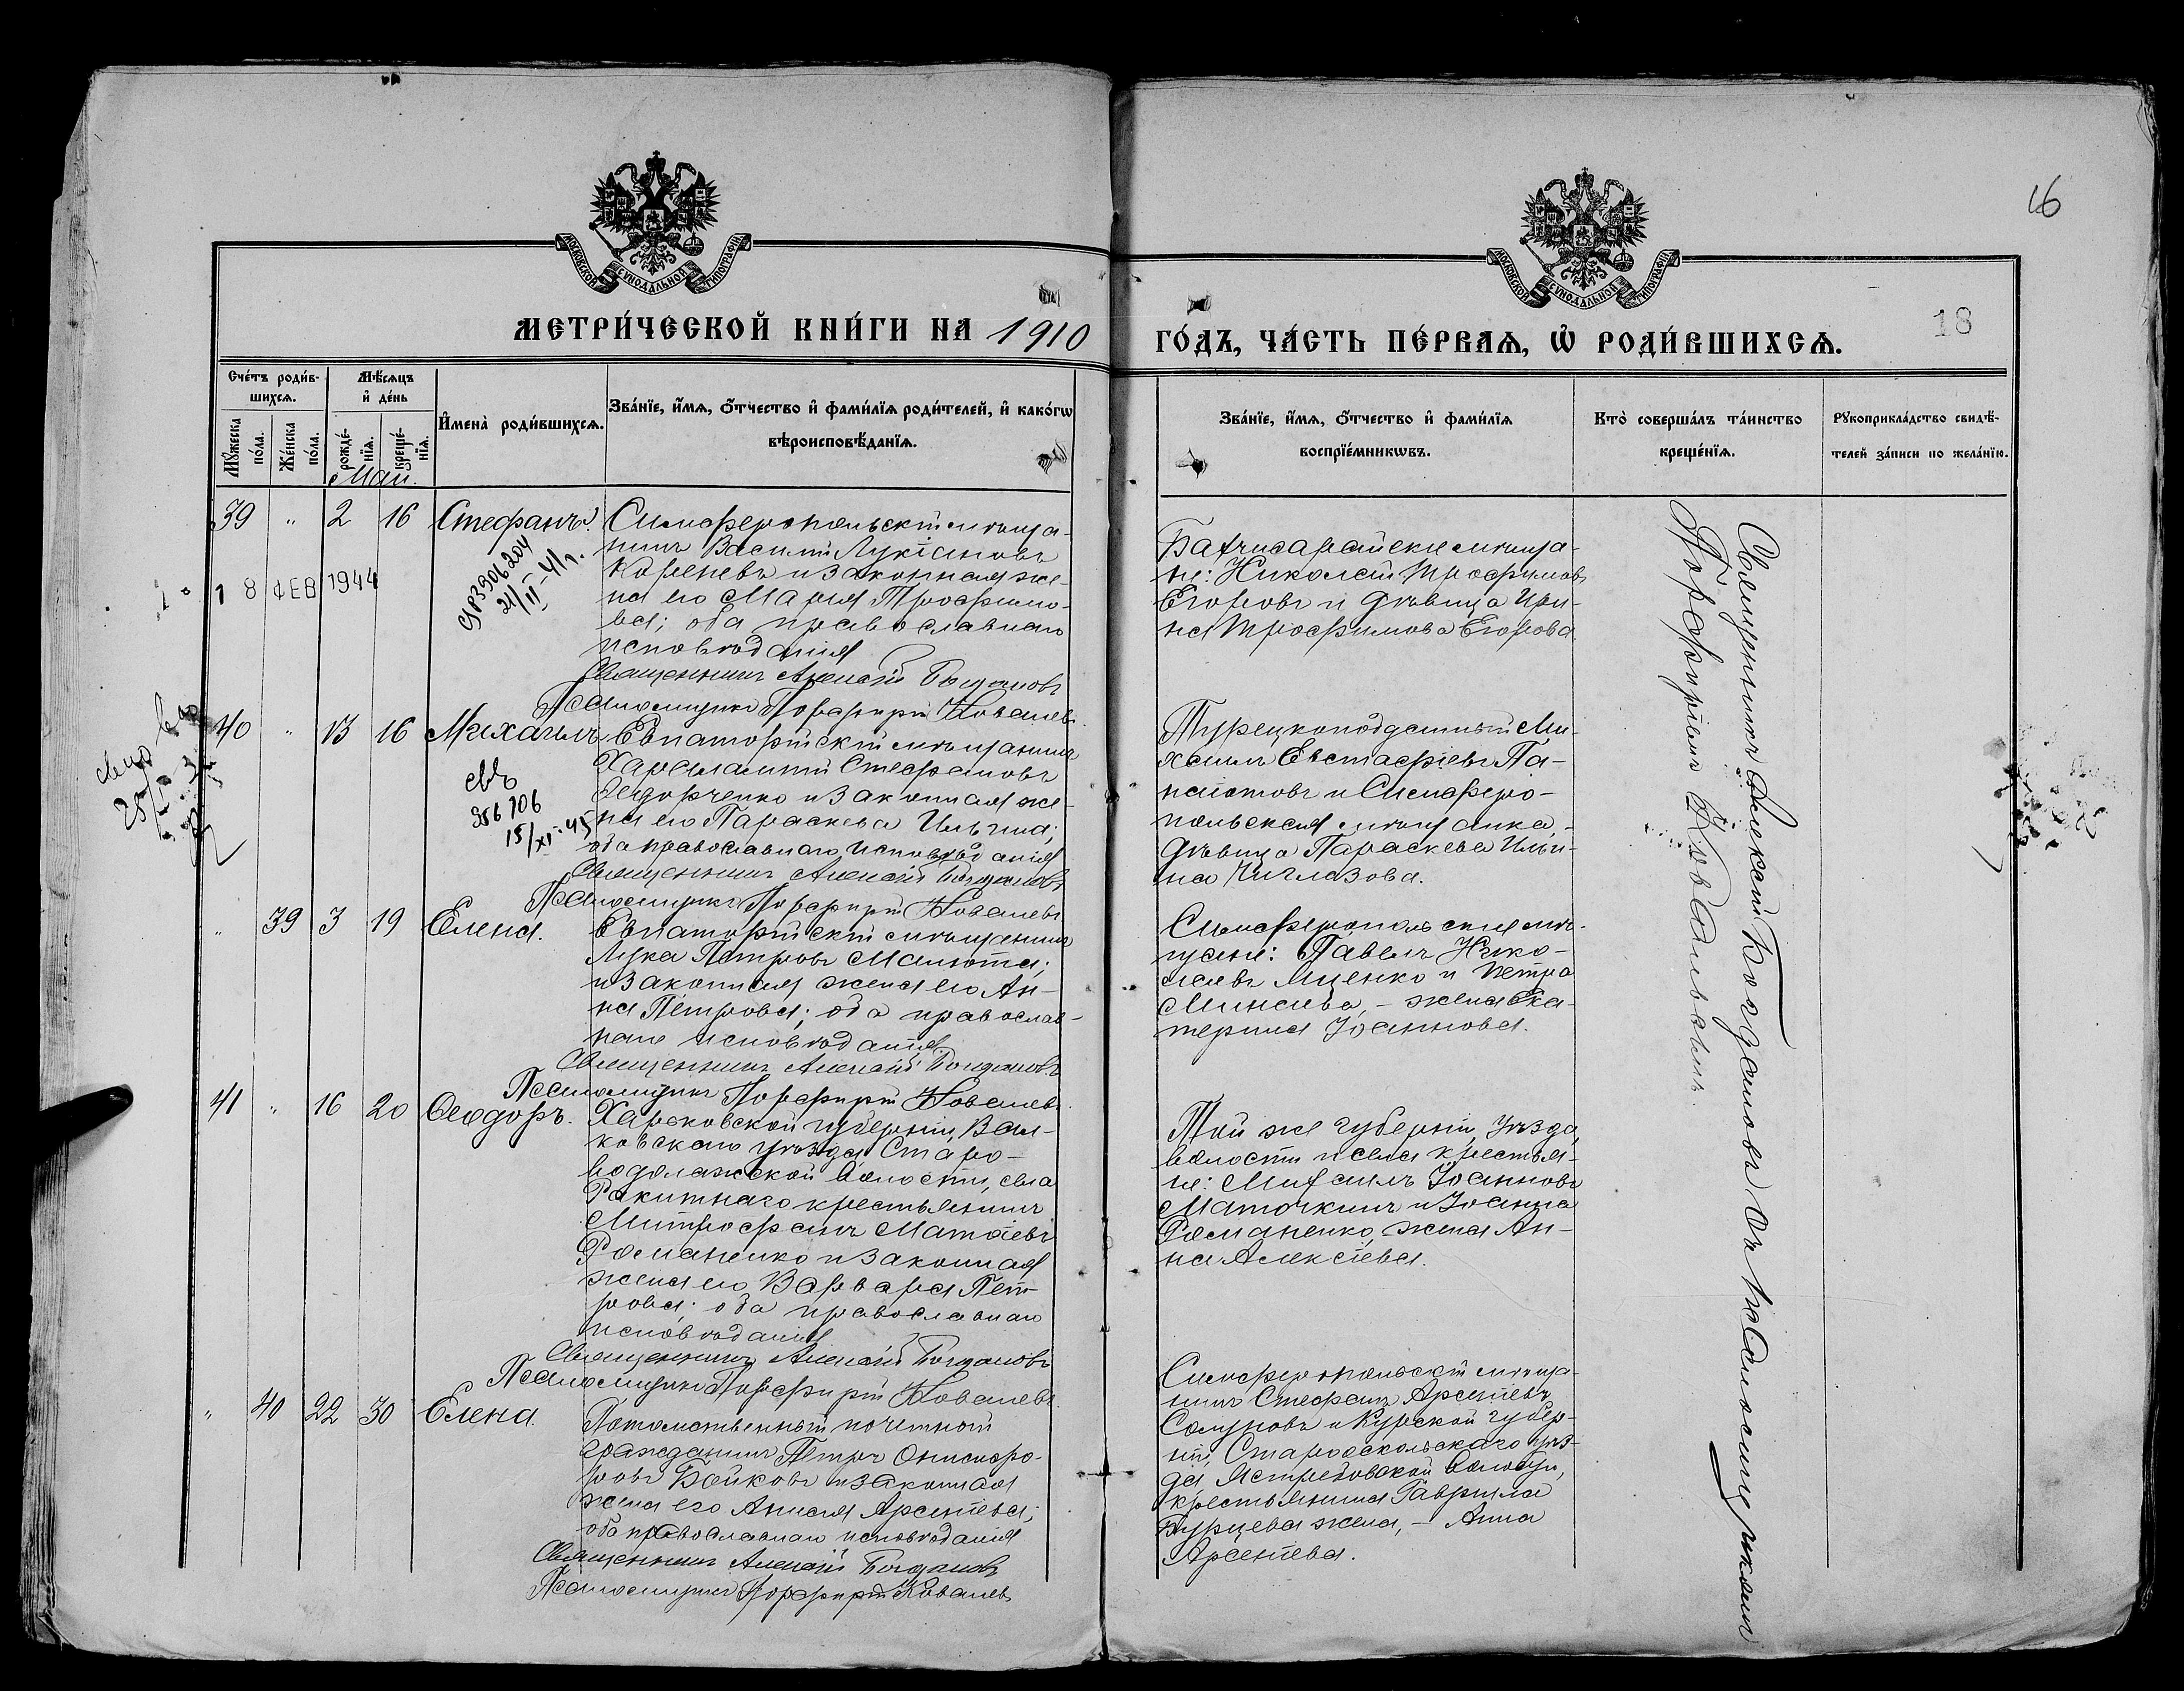 16
18
МОСКОВСКОЙ СѴНОДАЛЬНОЙ ТИПОГРАФІИ
МОСКОВСКОЙ СѴНОДАЛЬНОЙ ТИПОГРАФІИ
МЕТРИ́ЧЕСКОЙ КНИ́ГИ НА 1910
ГО́ДЪ, ЧА́СТЬ ПЕ́РВАѦ, Ѡ҆ РОДИ́ВШИХСѦ.
Сче́тъ роди́в-
шихсѧ.
Мѣ́сѧцъ
и҆ де́нь
Мꙋ́жеска
по́ла.
Же́нска
по́ла.
рожде́-
нїѧ.
креще́-
нїѧ.
И҆мена̀ роди́вшихсѧ.
Зва́нїе, и҆́мѧ, ѻ҆́тчество и҆ фами́лїѧ роди́телей, и҆ како́гѡ
вѣроисповѣ́данїѧ.
Зва́нїе, и҆́мѧ, ѻ҆́тчество и҆ фами́лїѧ
воспрїе́мникѡвъ.
Кто̀ соверша́лъ та́инство
креще́нїѧ.
Рꙋкоприкла́дство свидѣ́-
телей за́писи по жела́нїю.
Май.
39 " 2 16 Стефанъ.
Симферопольскій мѣща-
нинъ Василій Лукіановъ
Кореневъ и законная же-
на его Марія Трофимо-
ва; оба православнаго
исповѣданія
Священникъ Алексій Богдановъ
Псаломщикъ Порфирій Ковалевъ.
18 ФЕВ 1944
3306204
24/II-41 г.
Бахчисарайские мѣща-
не: Николай Трофимовъ
Егоровъ и дѣвица Ири-
на Трофимова Егорова.
40 " 13 16 Михаилъ
Евпаторійскій мѣщанинъ
Харлампій Стефановъ
Федорченко и законная же-
на его Параскева Ильина;
оба православнаго исповѣданія
Священникъ Алексій Богдановъ
Псаломщикъ Порфирій Ковалевъ
свъ
356706
15/XI-45
Турецкоподданный Ми-
хаилъ Евстафіевъ Па-
наіотовъ и Симферо-
польская мѣщанка,-
дѣвица Параскева Ильи-
на Чиглазова.
" 39 3 19 Елена.
Евпаторійскій мѣщанинъ
Лука Петровъ Малюта;
и законная жена его Ан-
на Петрова; оба православ-
наго исповѣданія
Священникъ Алексій Богдановъ
Псаломщикъ Порфирій Ковалевъ.
Симферопольские мѣ-
щане: Павелъ Нико-
лаевъ Яценко и Петра
Минаева, - жена Ека-
терина Іоаннова.
41 " 16 20 Ѳеодоръ.
Харьковской губерніи, Вал-
ковскаго уѣзда, Старо-
водолажской волости, села
Ракитнаго крестьянинъ
Митрофанъ Матѳіевъ
Романенко и законная
жена его Варвара Пет-
рова; оба православнаго
исповѣданія
Священникъ Алексій Богдановъ
Псаломщикъ Порфирій Ковалевъ.
Той же губерніи, уѣзда,
волости и села крестья-
не: Михаилъ Іоанновъ
Маточкинъ и Іоанна
Романенко, - жена Ан-
на Алексіева.
" 40 22 30 Елена.
Потомственный почетный
гражданинъ Петръ Онисифо-
ровъ Бойковъ и законная
жена его Анисія Арсеніева;
оба православнаго исповѣданія
Священникъ Алексій Богдановъ
Псаломщикъ Порфирій Ковалевъ
Симферопольскій мѣща-
нинъ Стефанъ Арсеніевъ
Солуновъ и Курской губер-
ніи, Старооскольскаго уѣз-
да, Ястребовской волости,
крестьянина Гавріила
Бурцева жена, - Анна
Арсеніева.
Священникъ Алексій Богдановъ съ псаломщикомъ
Порфиріемъ Ковалевымъ.